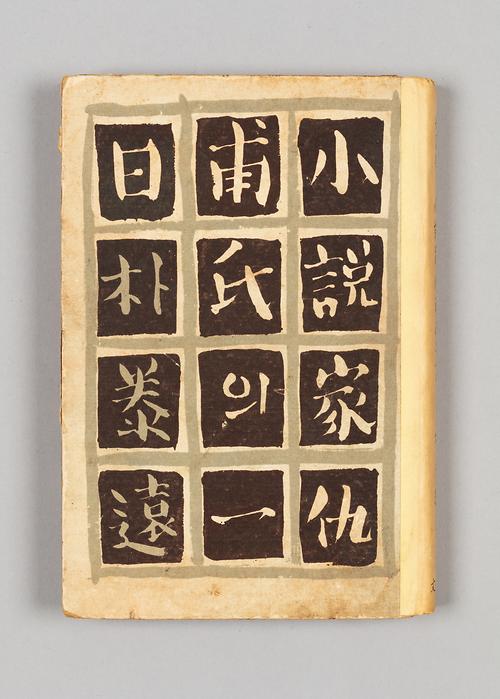 小説家仇
甫氏의一
日朴泰遠